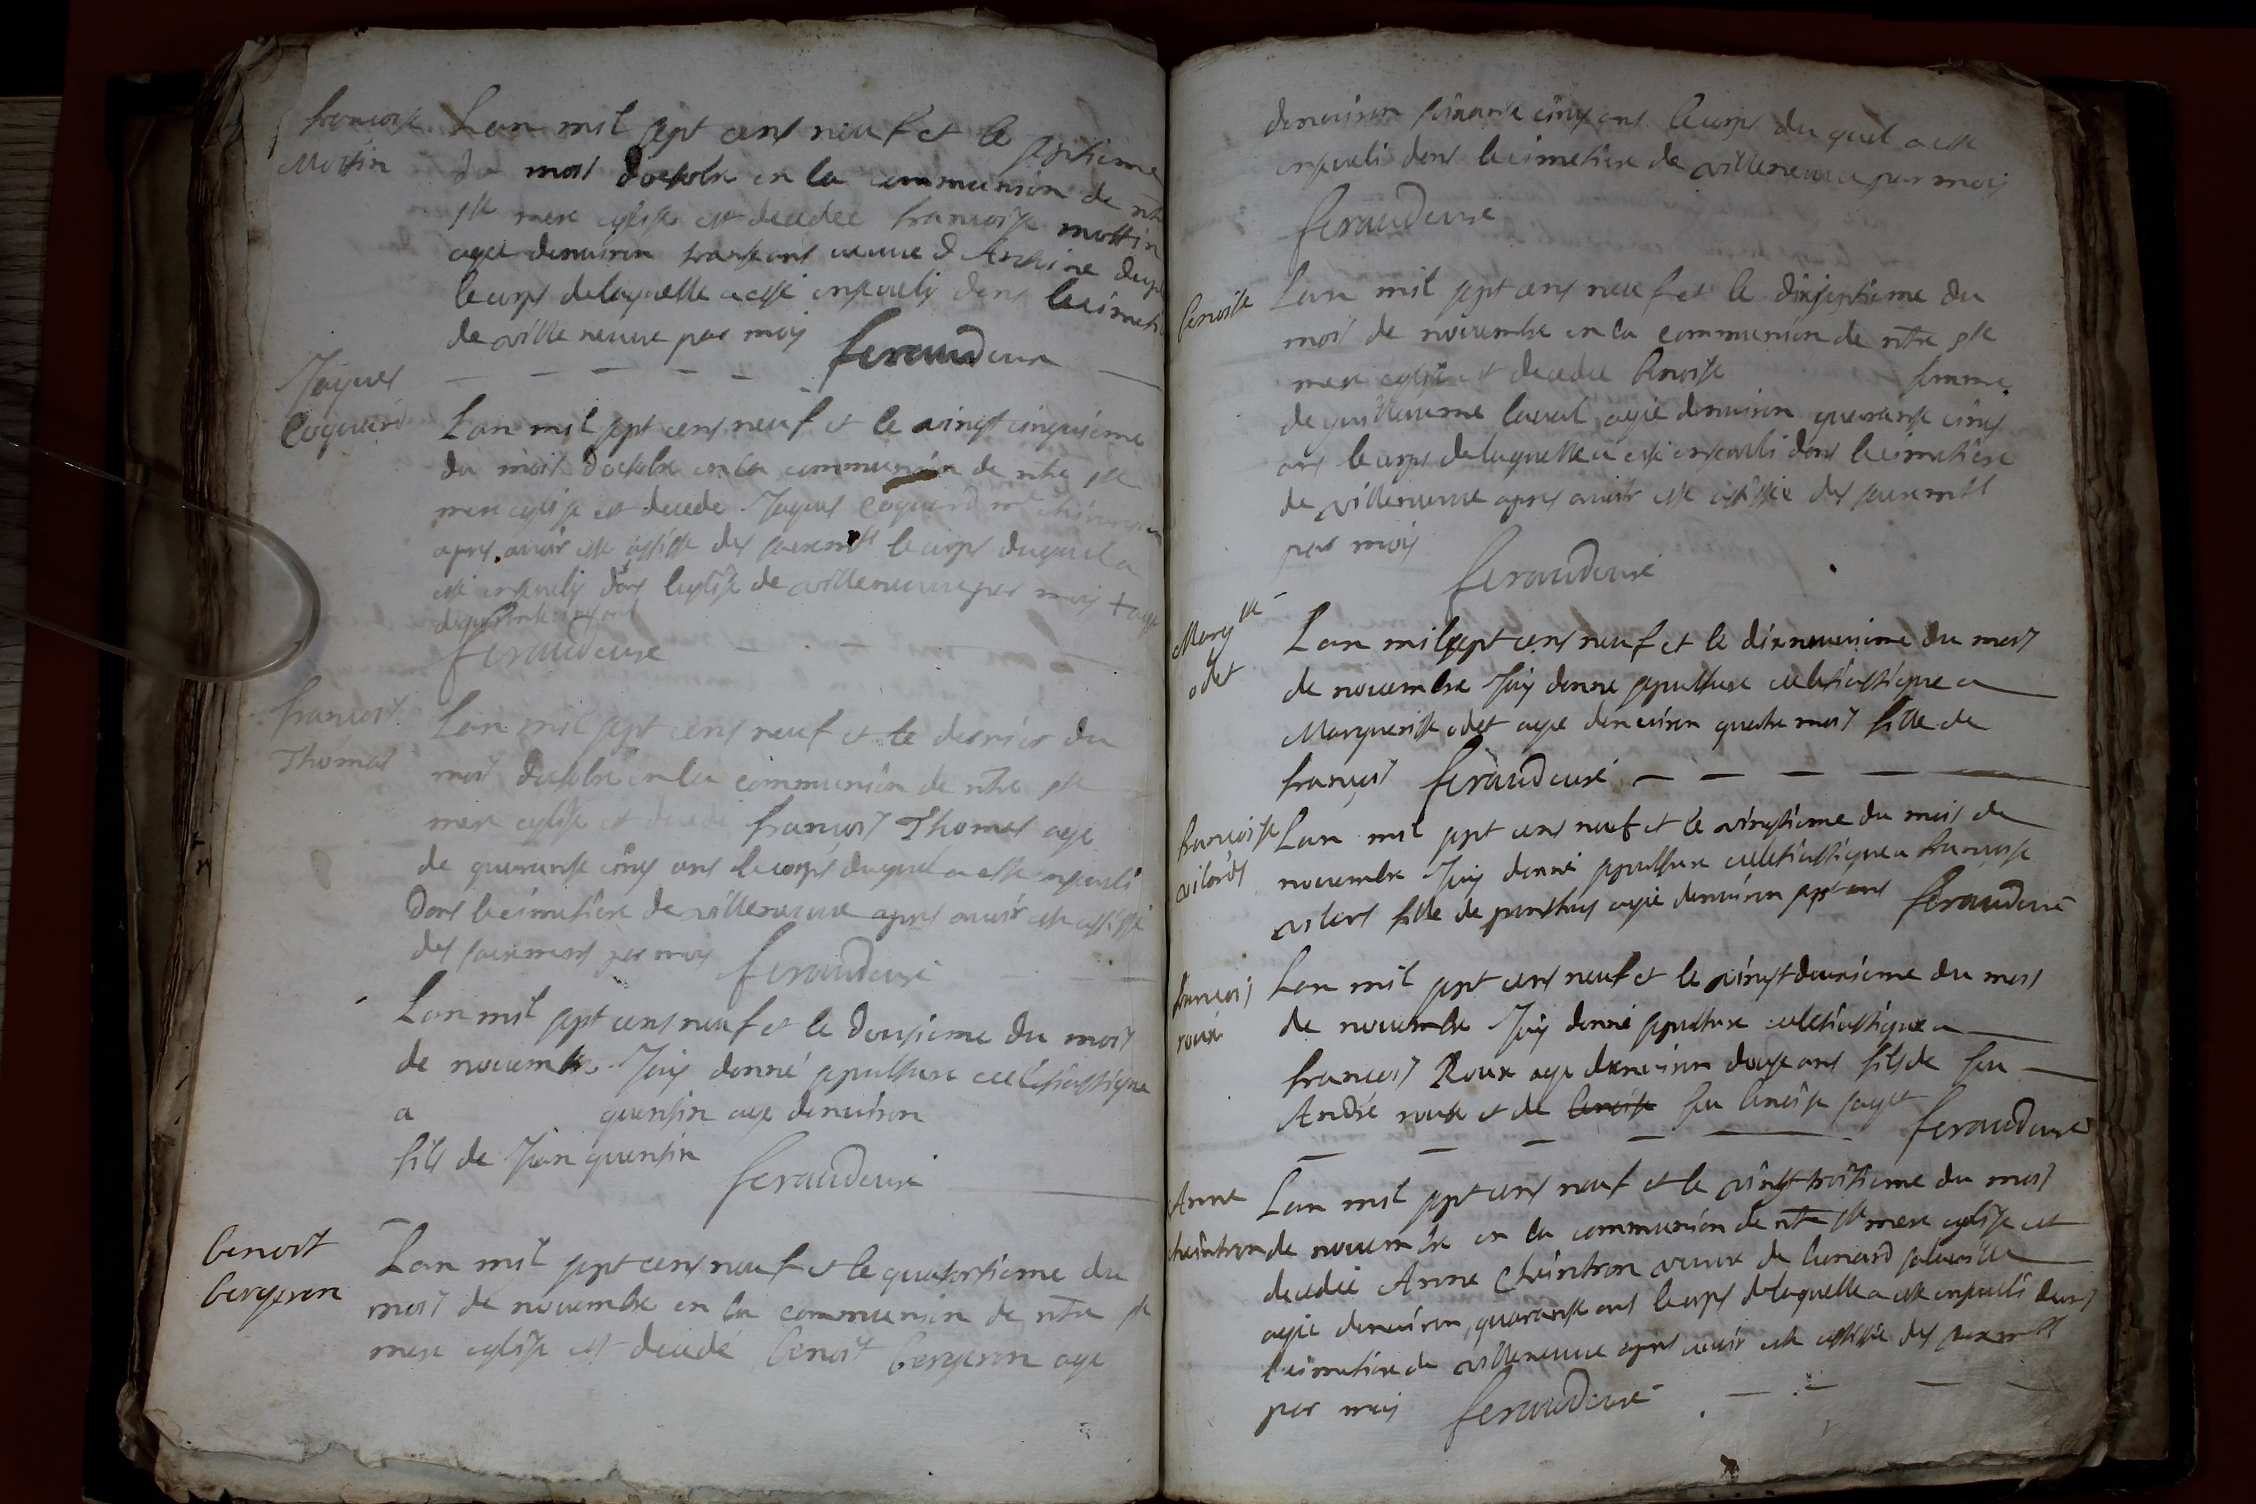 francoise
Mottin
Lan mil sept cens neuf et le septieme
du mois doctobre en la communion de ntre
ste mere eglise est decedee francoise mottin
agee denviron trante ans veuve d Antoine
le corps delaquelle a esté ensevely dans le cimetie
de ville neuve par moy feraud curé
Jaques
Coquard
Lan mil sept cens neuf et le vingt cinquieme
du mois doctobre en la communion de ntre ste
mere eglise est decede Jaques Coquard mre chirurgien
apres avoir esté assisté des sacremts le corps duquel a
esté ensevely dans leglise de villeneuve par moy + age
de quarante ans
feraud curé
francois
Thomas
Lan mil sept cens neuf et le dernier du
mois doctobre en la communion de ntre ste
mere eglise est decedé francois Thomas age
de quarante cinq ans le corps duquel a esté enseveli
dans le cimetiere de villeneuve apres avoir esté assisté
des sacremens par moy feraud curé
Lan mil sept cens neuf et le douzieme du mois
de novembre Jay donné sepulture ecclésiastique
a quentin age denviron
fils de Jean quentin
feraud curé
benoit
bergeron
Lan mil sept cens neuf et le quatorzieme du
mois de novembre en la communion de ntre ste
mere eglise est decedé benoit bergeron age
denviron soixante cinq ans le corps du quel a esté
enseveli dans le cimetiere de villeneuve par moy
feraud curé
benoite
Lan mil sept cens neuf et le dixseptieme du
mois de novembre en la communion de ntre ste
mere eglise est decedee benoite femme
de guillaume laval agée denviron quarante cinq
ans le corps delaquelle a esté enseveli dans le cimetiere
de villeneuve apres avoir esté assistée des sacremts
par moy
feraud curé
Margte
odet
Lan mil sept cens neuf et le dixneuvieme du mois
de novembre Jay donné sepulture ecclesiastique a
Margueritte odet agee denviron quatre mois fille de
francois feraud curé
francoise
vilards
Lan mil sept cens neuf et le vingtieme du mois de
novembre Jay donné sepulture ecclesiastique a francoise
vilars fille de agée denviron sept ans feraud curé
francois
roux
Lan mil sept cens neuf et le vingt deuxieme du mois
de novembre Jay donné sepulture ecclesiastique a
francois Roux age denviron douze ans fils de feu
André roux et de benoite feu benoite payet
feraud curé
Anne
cheintron
Lan mil sept cens neuf et le vingt troisieme du mois
de novembre en la communion de ntre ste mere eglise est
decedée Anne Cheintron veuve de lienard
agée denviron quarante ans le corps delaquelle a esté enseveli dans
le cimetiere de villeneuve apres avoir esté assistée des sacremts
par moy feraud curé